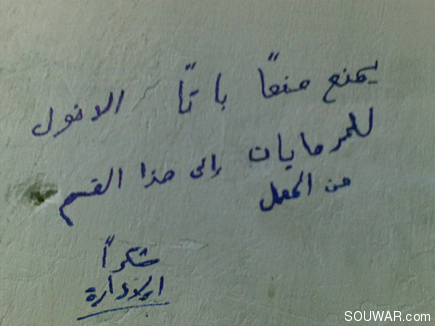 يمنع منعًا باتًا الدخول
إلى هذا القسم
من المعمل
شكرًا
الإدارة
SOUWAR.com